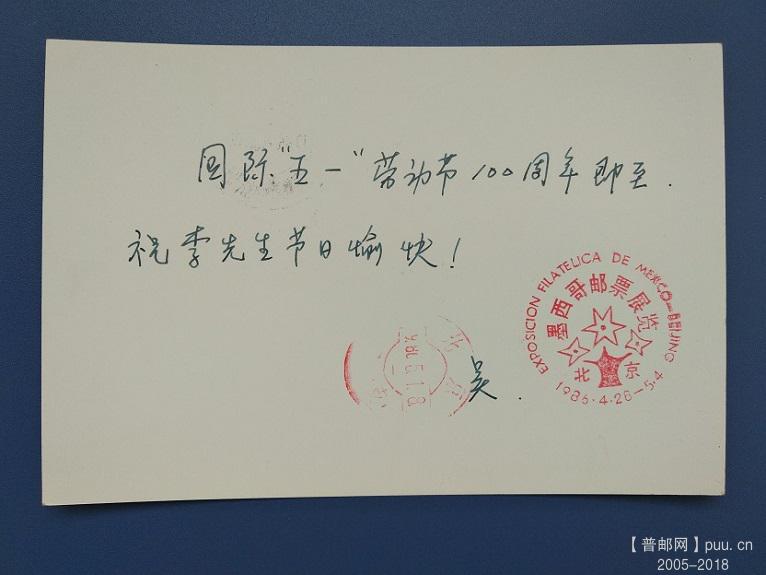 国际"五一"劳动节100周年即至.
祝李先生节日愉快!
吴.
EXPOSICION FILATELICA DE MEXICO-BEIJING
墨西哥邮票展览
北京
1986.4.26-5.4
北京
1986.5.1.8
【普邮网】puu.cn
2005-2018